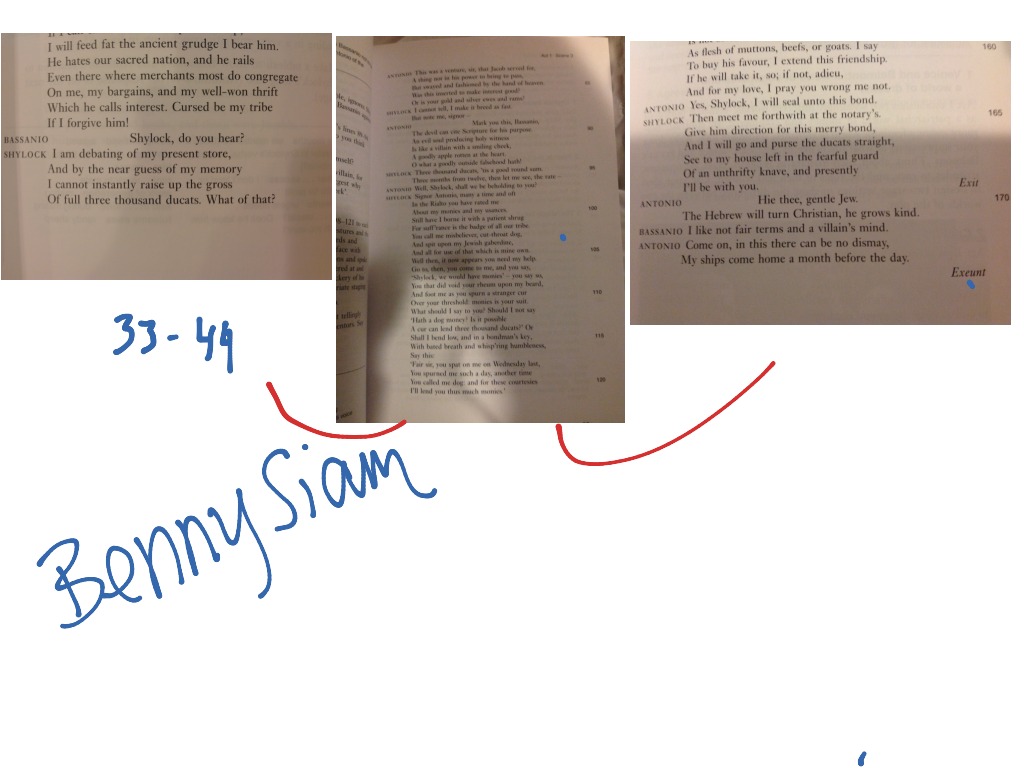 I will feed fat the ancient grudge I bear him.
He hates our sacred nation, and he rails
Even there where merchants most do congregate
On me, my bargains, and my well-won thrift
Which he calls interest. Cursed be my tribe
If I forgive him!
BASSANIO Shylock, do you hear?
SHYLOCK I am debating of my present store,
And by the near guess of my memory
I cannot instantly raise up the gross
Of full three thousand ducats. What of that?
33-44
ANTONIO This was a venture, sir, that Jacob served for,
A thing not in his power to bring to pass,
But swayed and fashioned by the hand of heaven.
Was this inserted to make interest good?
Or is your gold and silver ewes and rams?
SHYLOCK I cannot tell, I make it breed as fast.
But note me, signor –
ANTONIO Mark you this, Bassanio,
The devil can cite Scripture for his purpose.
An evil soul producing holy witness
Is like a villain with a smiling cheek,
A goodly apple rotten at the heart.
O what a goodly outside falsehood hath!
SHYLOCK Three thousand ducats, 'tis a good round sum.
Three months from twelve, then let me see, the rate –
ANTONIO Well, Shylock, shall we be beholding to you?
SHYLOCK Signor Antonio, many a time and oft
In the Rialto you have rated me
About my monies and my usances.
Still have I borne it with a patient shrug
For suff'rance is the badge of all our tribe.
You call me misbeliever, cut-throat dog,
And spit upon my Jewish gaberdine,
And all for use of that which is mine own.
Well then, it now appears you need my help.
Go to, then, you come to me, and you say,
'Shylock, we would have monies' – you say so,
You that did void your rheum upon my beard,
And foot me as you spurn a stranger cur
Over your threshold: monies is your suit.
What should I say to you? Should I not say
'Hath a dog money? Is it possible
A cur can lend three thousand ducats?' Or
Shall I bend low, and in a bondman's key,
With bated breath and whisp'ring humbleness,
Say this:
'Fair sir, you spat on me on Wednesday last,
You spurned me such a day, another time
You called me dog: and for these courtesies
I'll lend you thus much monies.'
As flesh of muttons, beefs, or goats. I say 160
To buy his favour, I extend this friendship.
If he will take it, so; if not, adieu,
And for my love, I pray you wrong me not.
ANTONIO Yes, Shylock, I will seal unto this bond.
SHYLOCK Then meet me forthwith at the notary's. 165
Give him direction for this merry bond,
And I will go and purse the ducats straight,
See to my house left in the fearful guard
Of an unthrifty knave, and presently
I'll be with you. Exit
ANTONIO Hie thee, gentle Jew. 170
The Hebrew will turn Christian, he grows kind.
BASSANIO I like not fair terms and a villain's mind.
ANTONIO Come on, in this there can be no dismay,
My ships come home a month before the day.
Exeunt
Benny Siam